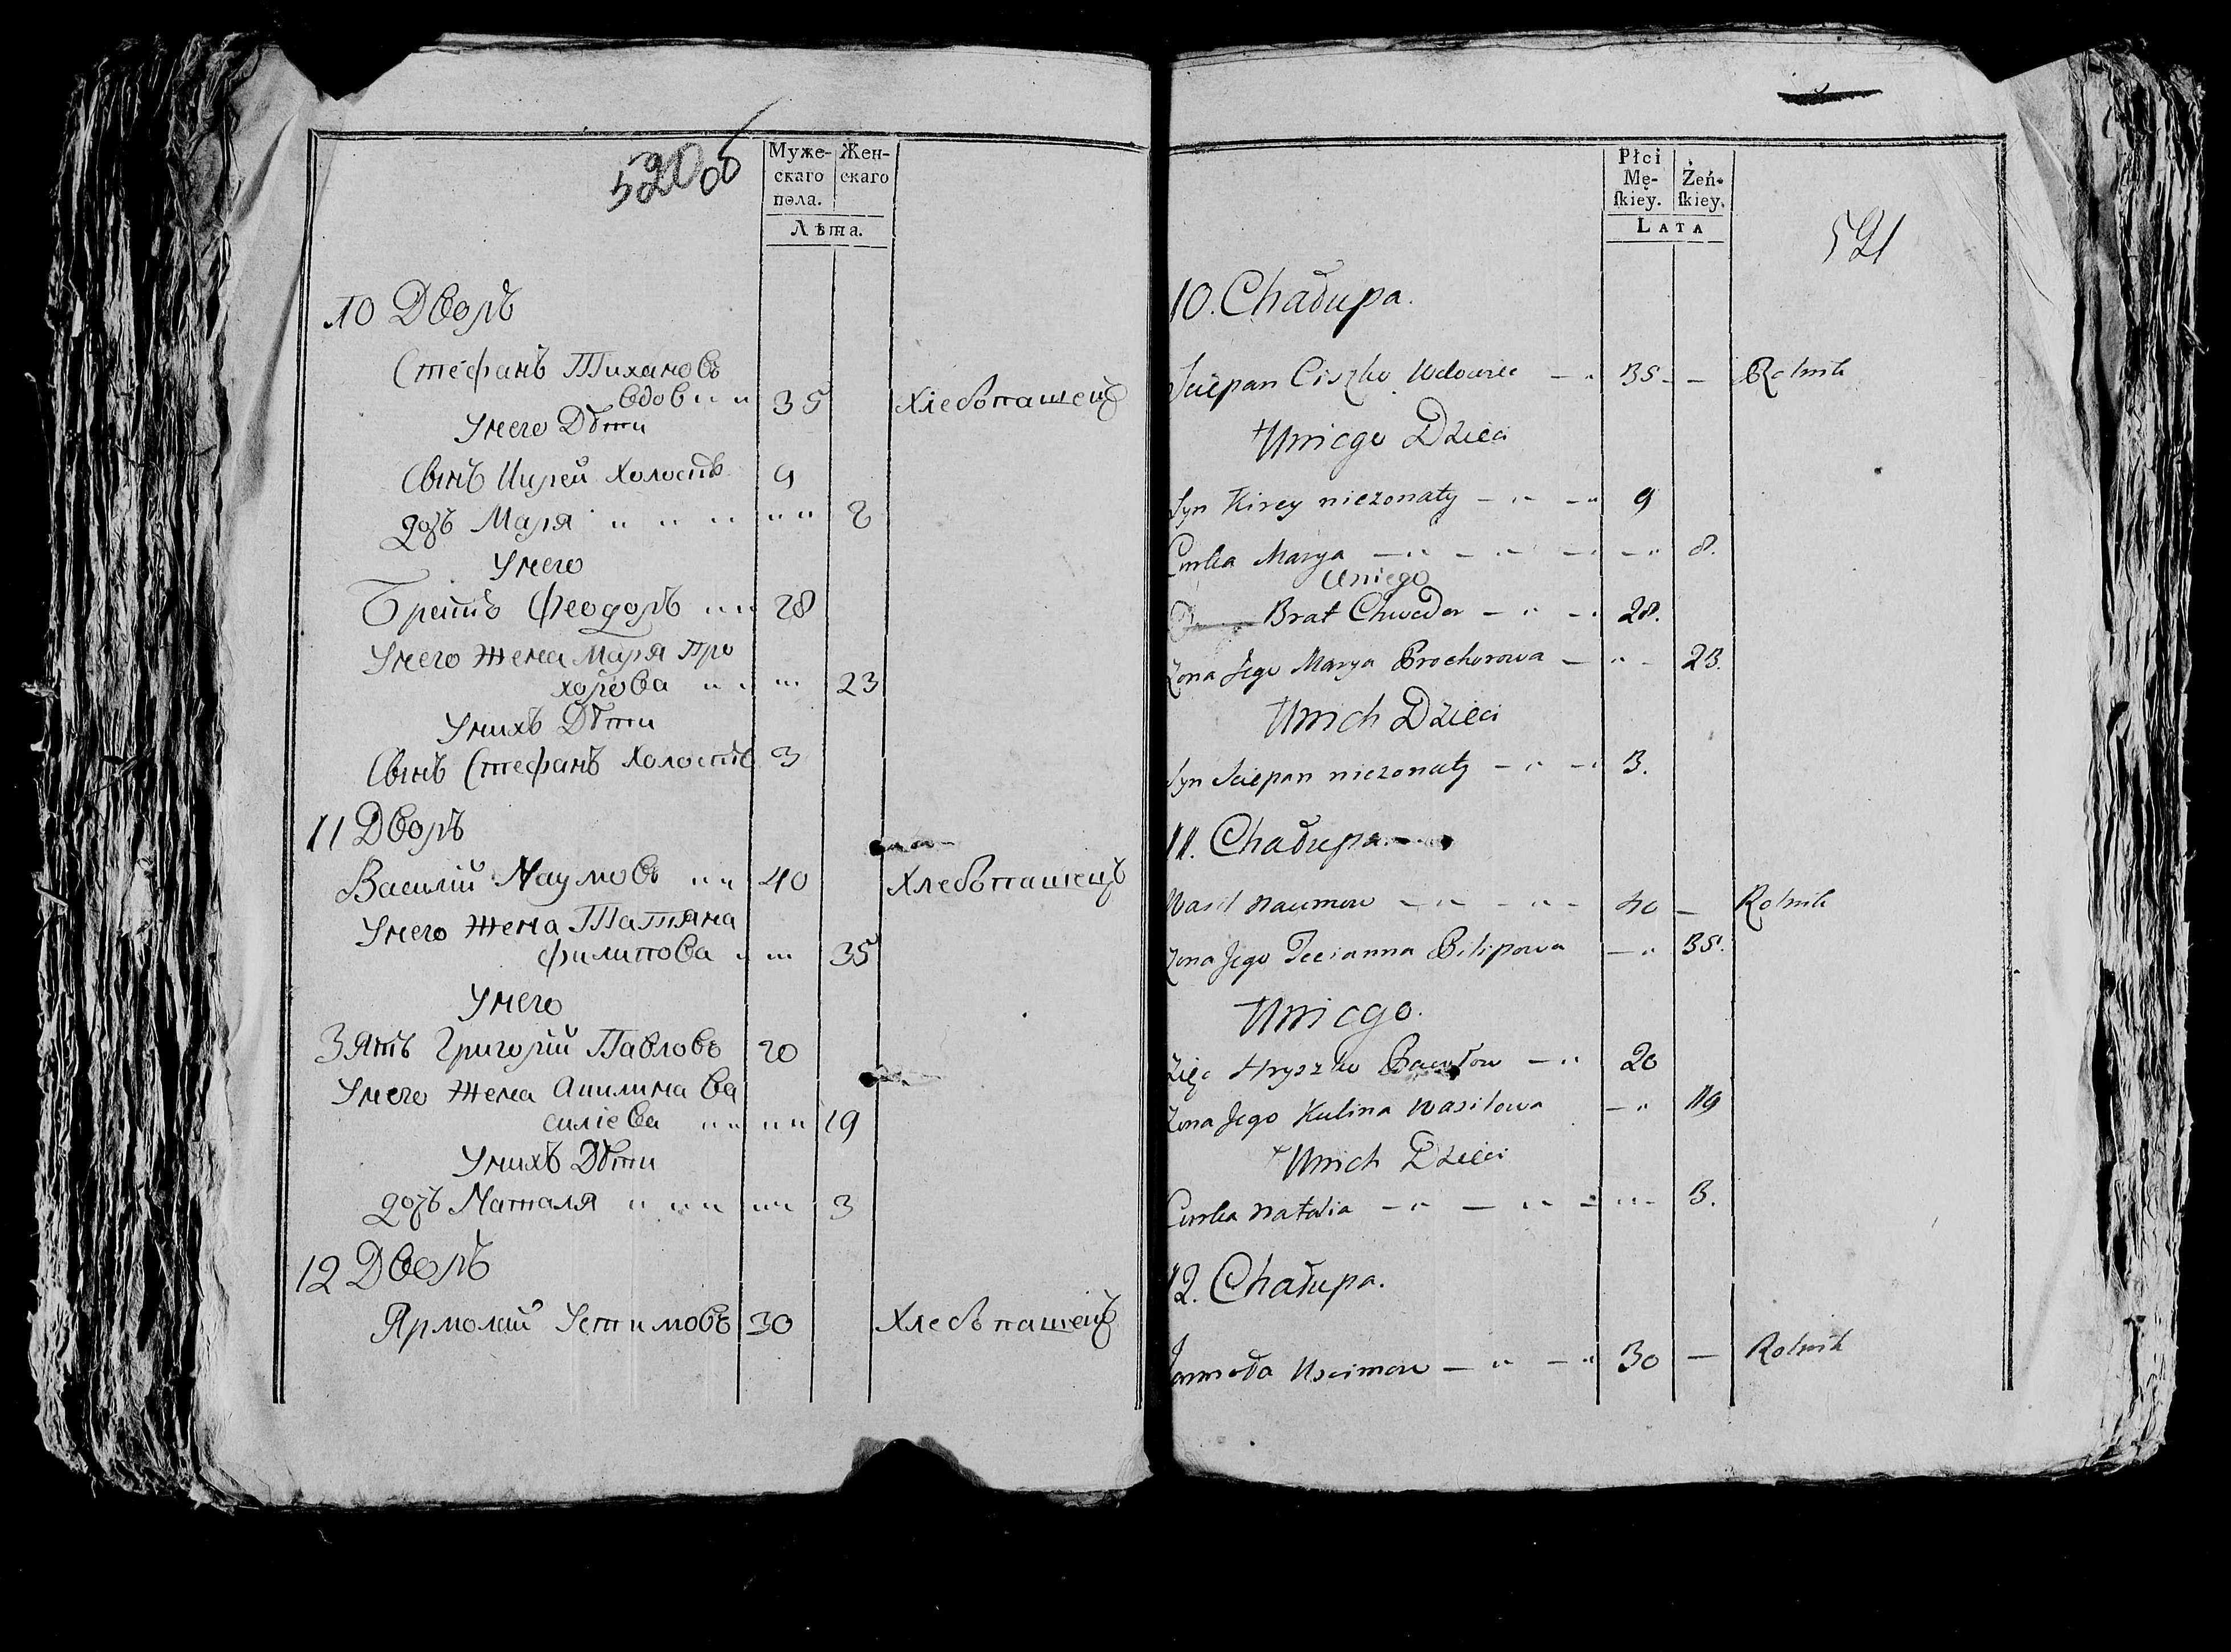 520 об
Муже-
скаго
пола.
Жен-
скаго
Лѣта.
10 Дворъ
Стефанъ Тихановъ
вдов " " 35 Хлебопашецъ
Унего Дѣти
Сынъ Кирей холостъ 9
дочь Маря " " " " " 8
Унего
Братъ Феодоръ " " 28
Унего жена Маря Про
хорова " " " 23
Унихъ Дѣти
Сынъ Стефанъ холостъ 3
11 Дворъ
Василий Наумовъ " " 40 Хлебопашецъ
Унего жена Татяна
филипова " " 35
Унего
Зять Григорий Павловъ 20
Унего жена Акилина Ва
силіева " " " " 19
Унихъ Дѣти
дочь Наталя " " " " " 3
12 Дворъ
Ярмолай Устимовъ 30 Хлебпашецъ
Płci
Mę-
ſkiey.
Żeń-
ſkiey.
LATA
521
10. Chałupa.
Sciepan Ciszko Wdowiec — " 35 — Rolnik
Uniego Dzieci
Syn Kirey niezonaty — " — " 9
Curka Marya — " — " — " — " 8.
Uniego
Brat Chwedor — " — " 28.
Zona Jego Marya Prochorowa — " — 23.
Unich Dzieci
Syn Sciepan niezonaty — " — " 3.
11. Chałupa.
Wasil Naumow — " — " — 40 — Rolnik
Zona Jego Tecianna Pilipowa — " 35.
Uniego.
Zięc Hryszko Pawłow — " 20
Zona Jego Kulina Wasilowa — " 19
Unich Dzieci
Curka Natalia — " — " — " — 3.
12. Chałupa.
Jarmoła Uscimow — " — " 30 — Rolnik